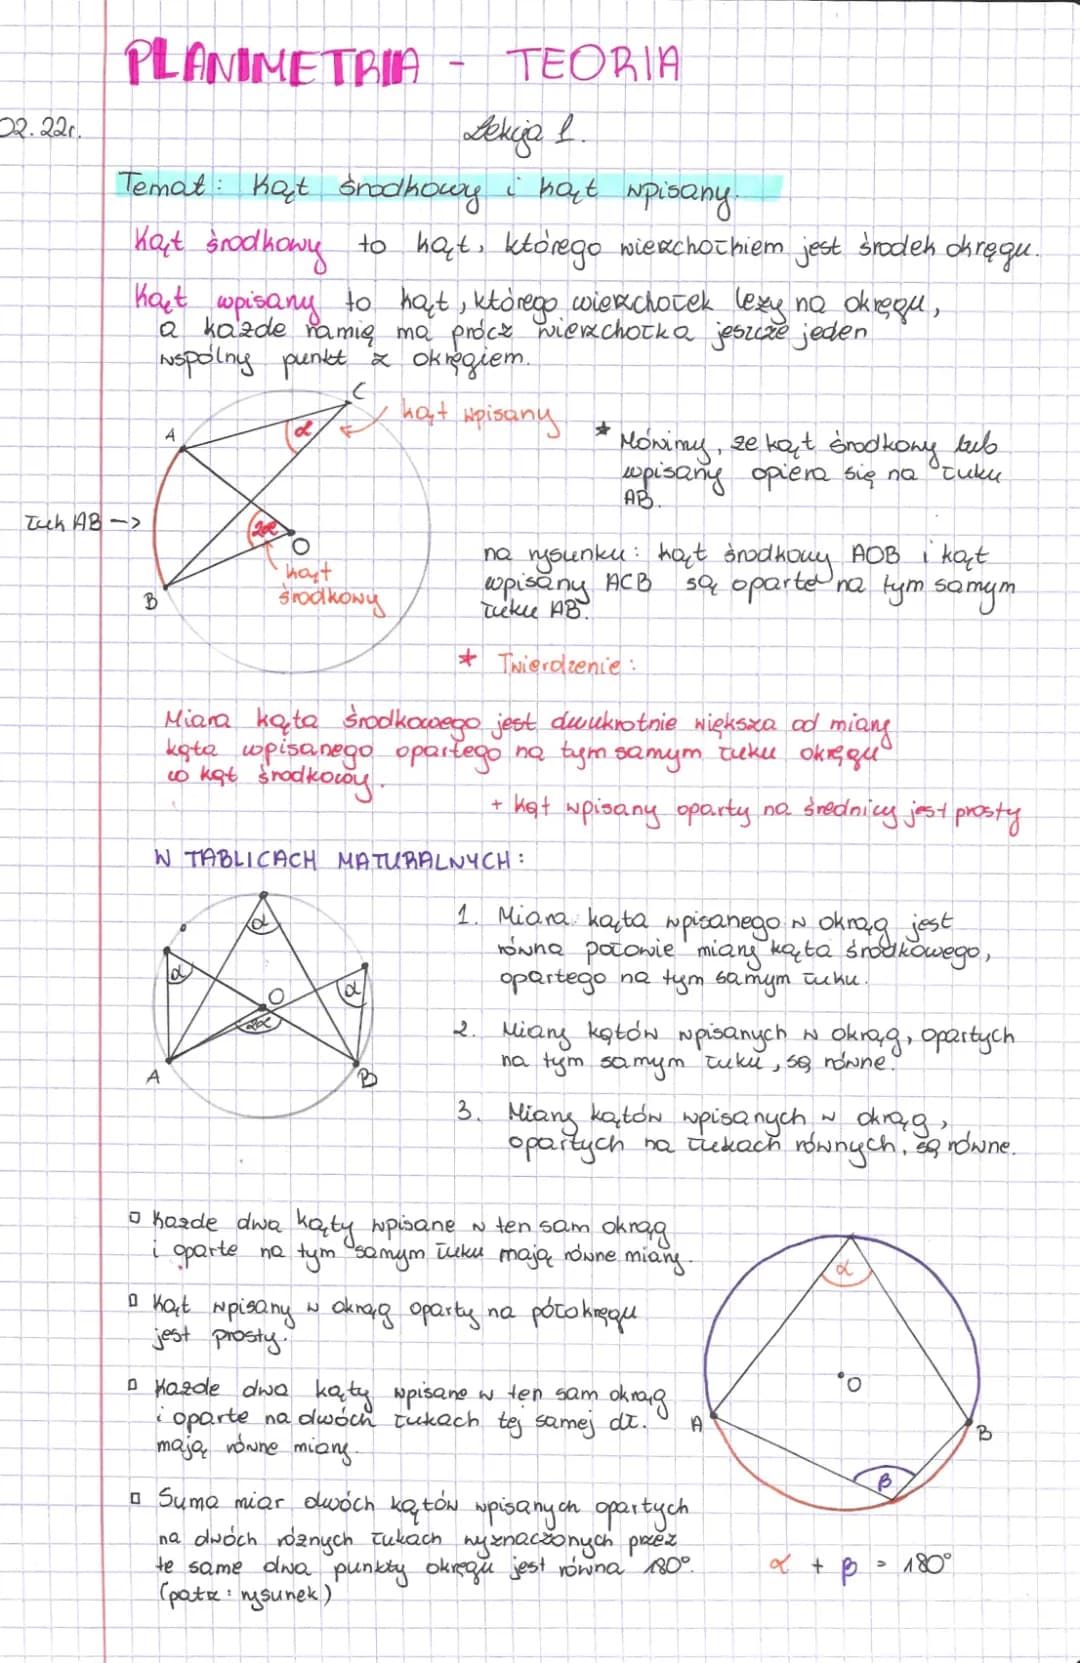 PLANIMETRIA - TEORIA
02.22r.
Lekcja 1.
Temat: Kąt środkowy i kąt wpisany.
Kąt środkowy to kąt, którego wierzchołkiem jest środek okręgu.
Kąt wpisany to kąt, którego wierzchołek leży na okręgu,
a każde ramię ma prócz wierzchołka jeszcze jeden
wspólny punkt z okręgiem.
C
kąt wpisany
A
α
* Mówimy, że kąt środkowy lub
wpisany opiera się na łuku
AB.
łuk AB ->
2α
O
kąt
środkowy
B
na rysunku: kąt środkowy AOB i kąt
wpisany ACB są oparte na tym samym
łuku AB.
* Twierdzenie:
Miara kąta środkowego jest dwukrotnie większa od miary
kąta wpisanego opartego na tym samym łuku okręgu
co kąt środkowy.
+ kąt wpisany oparty na średnicy jest prosty
W TABLICACH MATURALNYCH:
α
α
α
O
2α
A
B
1. Miara kąta wpisanego w okrąg jest
równa połowie miary kąta środkowego,
opartego na tym samym łuku.
2. Miary kątów wpisanych w okrąg, opartych
na tym samym łuku, są równe.
3. Miary kątów wpisanych w okrąg,
opartych na łukach równych, są równe.
▫ Każde dwa kąty wpisane w ten sam okrąg
i oparte na tym samym łuku mają równe miary.
▫ Kąt wpisany w okrąg oparty na półokręgu
jest prosty.
▫ Każde dwa kąty wpisane w ten sam okrąg
i oparte na dwóch łukach tej samej dł.
mają równe miary.
▫ Suma miar dwóch kątów wpisanych opartych
na dwóch różnych łukach wyznaczonych przez
te same dwa punkty okręgu jest równa 180°.
(patrz: rysunek)
α
O
A
B
β
α + β = 180°